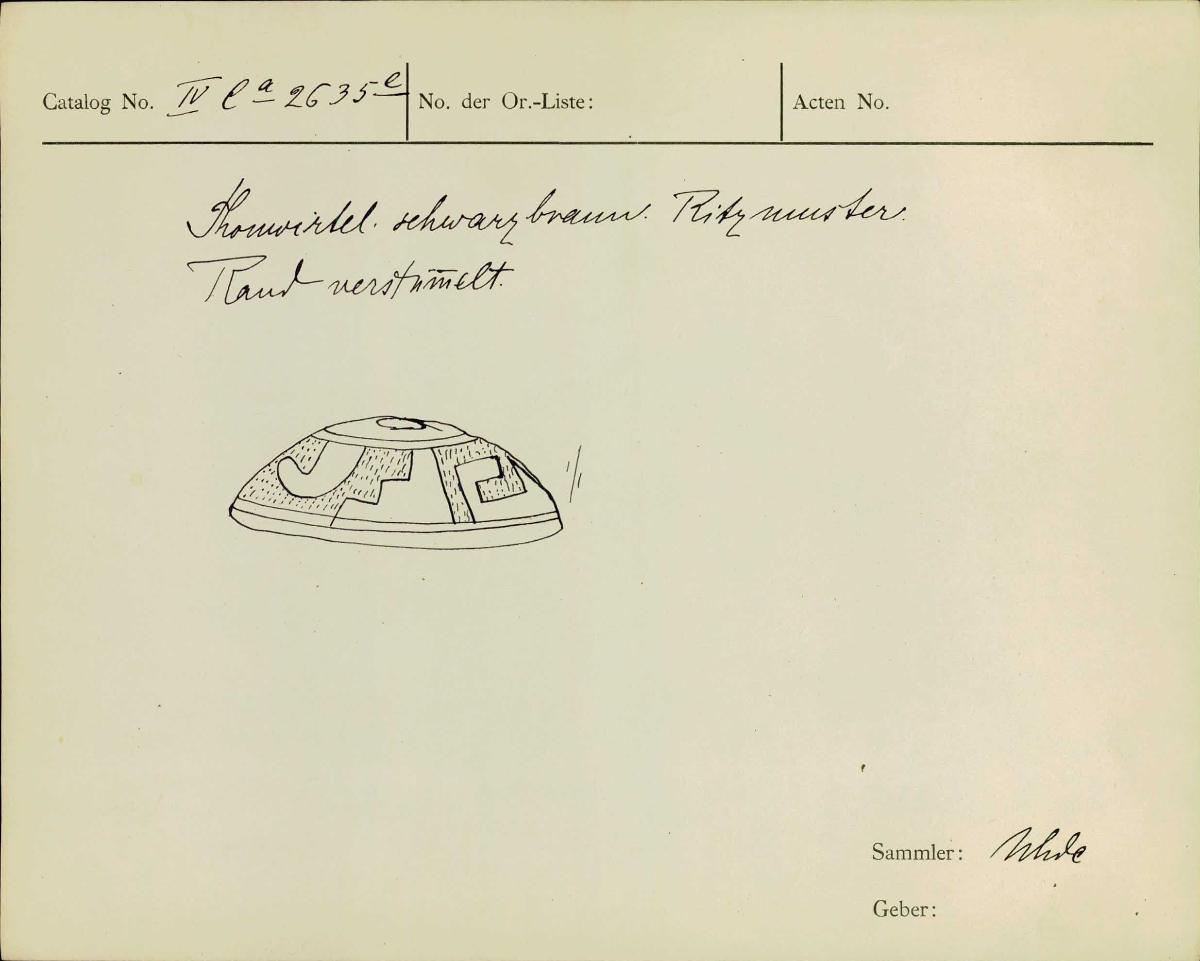 Catalog No. IV Ca 2635 e No. der Or.-Liste: Acten No.
Thonwirtel. schwarzbraun. Ritzmuster.
Rand verstüm̅elt.
1/1
Sammler: Uhde
Geber: